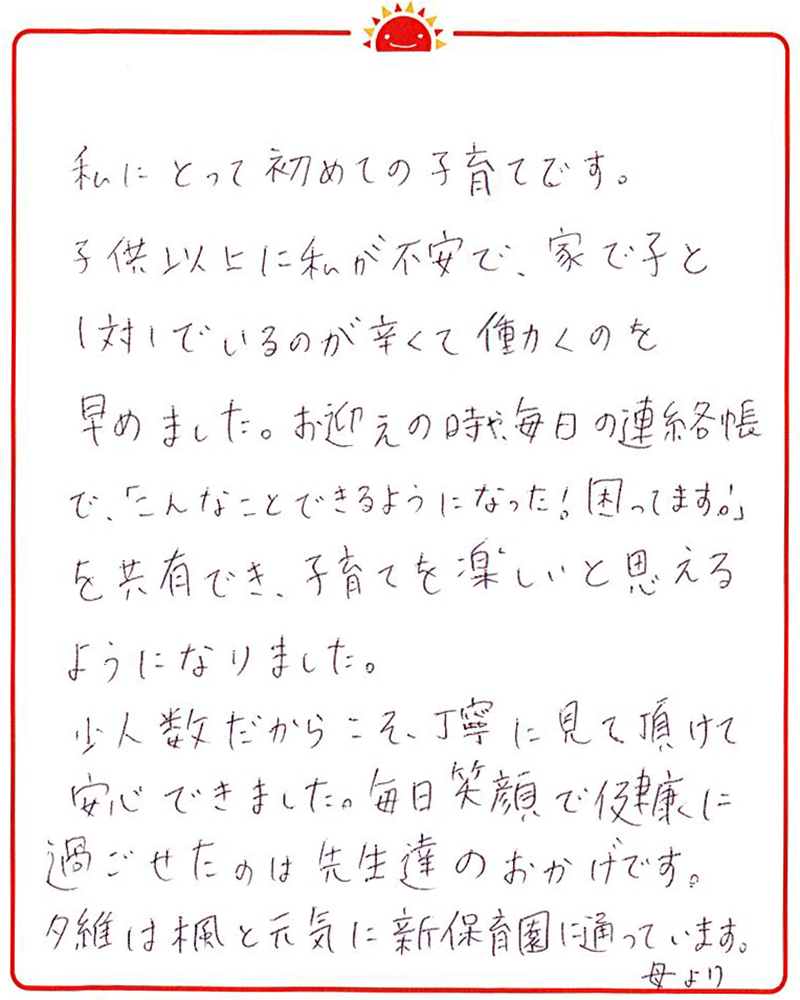 私にとって初めての子育てです。
子供以上に私が不安で、家で子と
1対1でいるのが辛くて働くのを
早めました。お迎えの時や、毎日の連絡帳
で、「こんなことできるようになった!困ってます。!」
を共有でき、子育てを楽しいと思える
ようになりました。
少人数だからこそ、丁寧に見て頂けて
安心できました。毎日笑顔で健康に
過ごせたのは先生達のおかげです。
夕維は楓と元気に新保育園に通っています。
母より